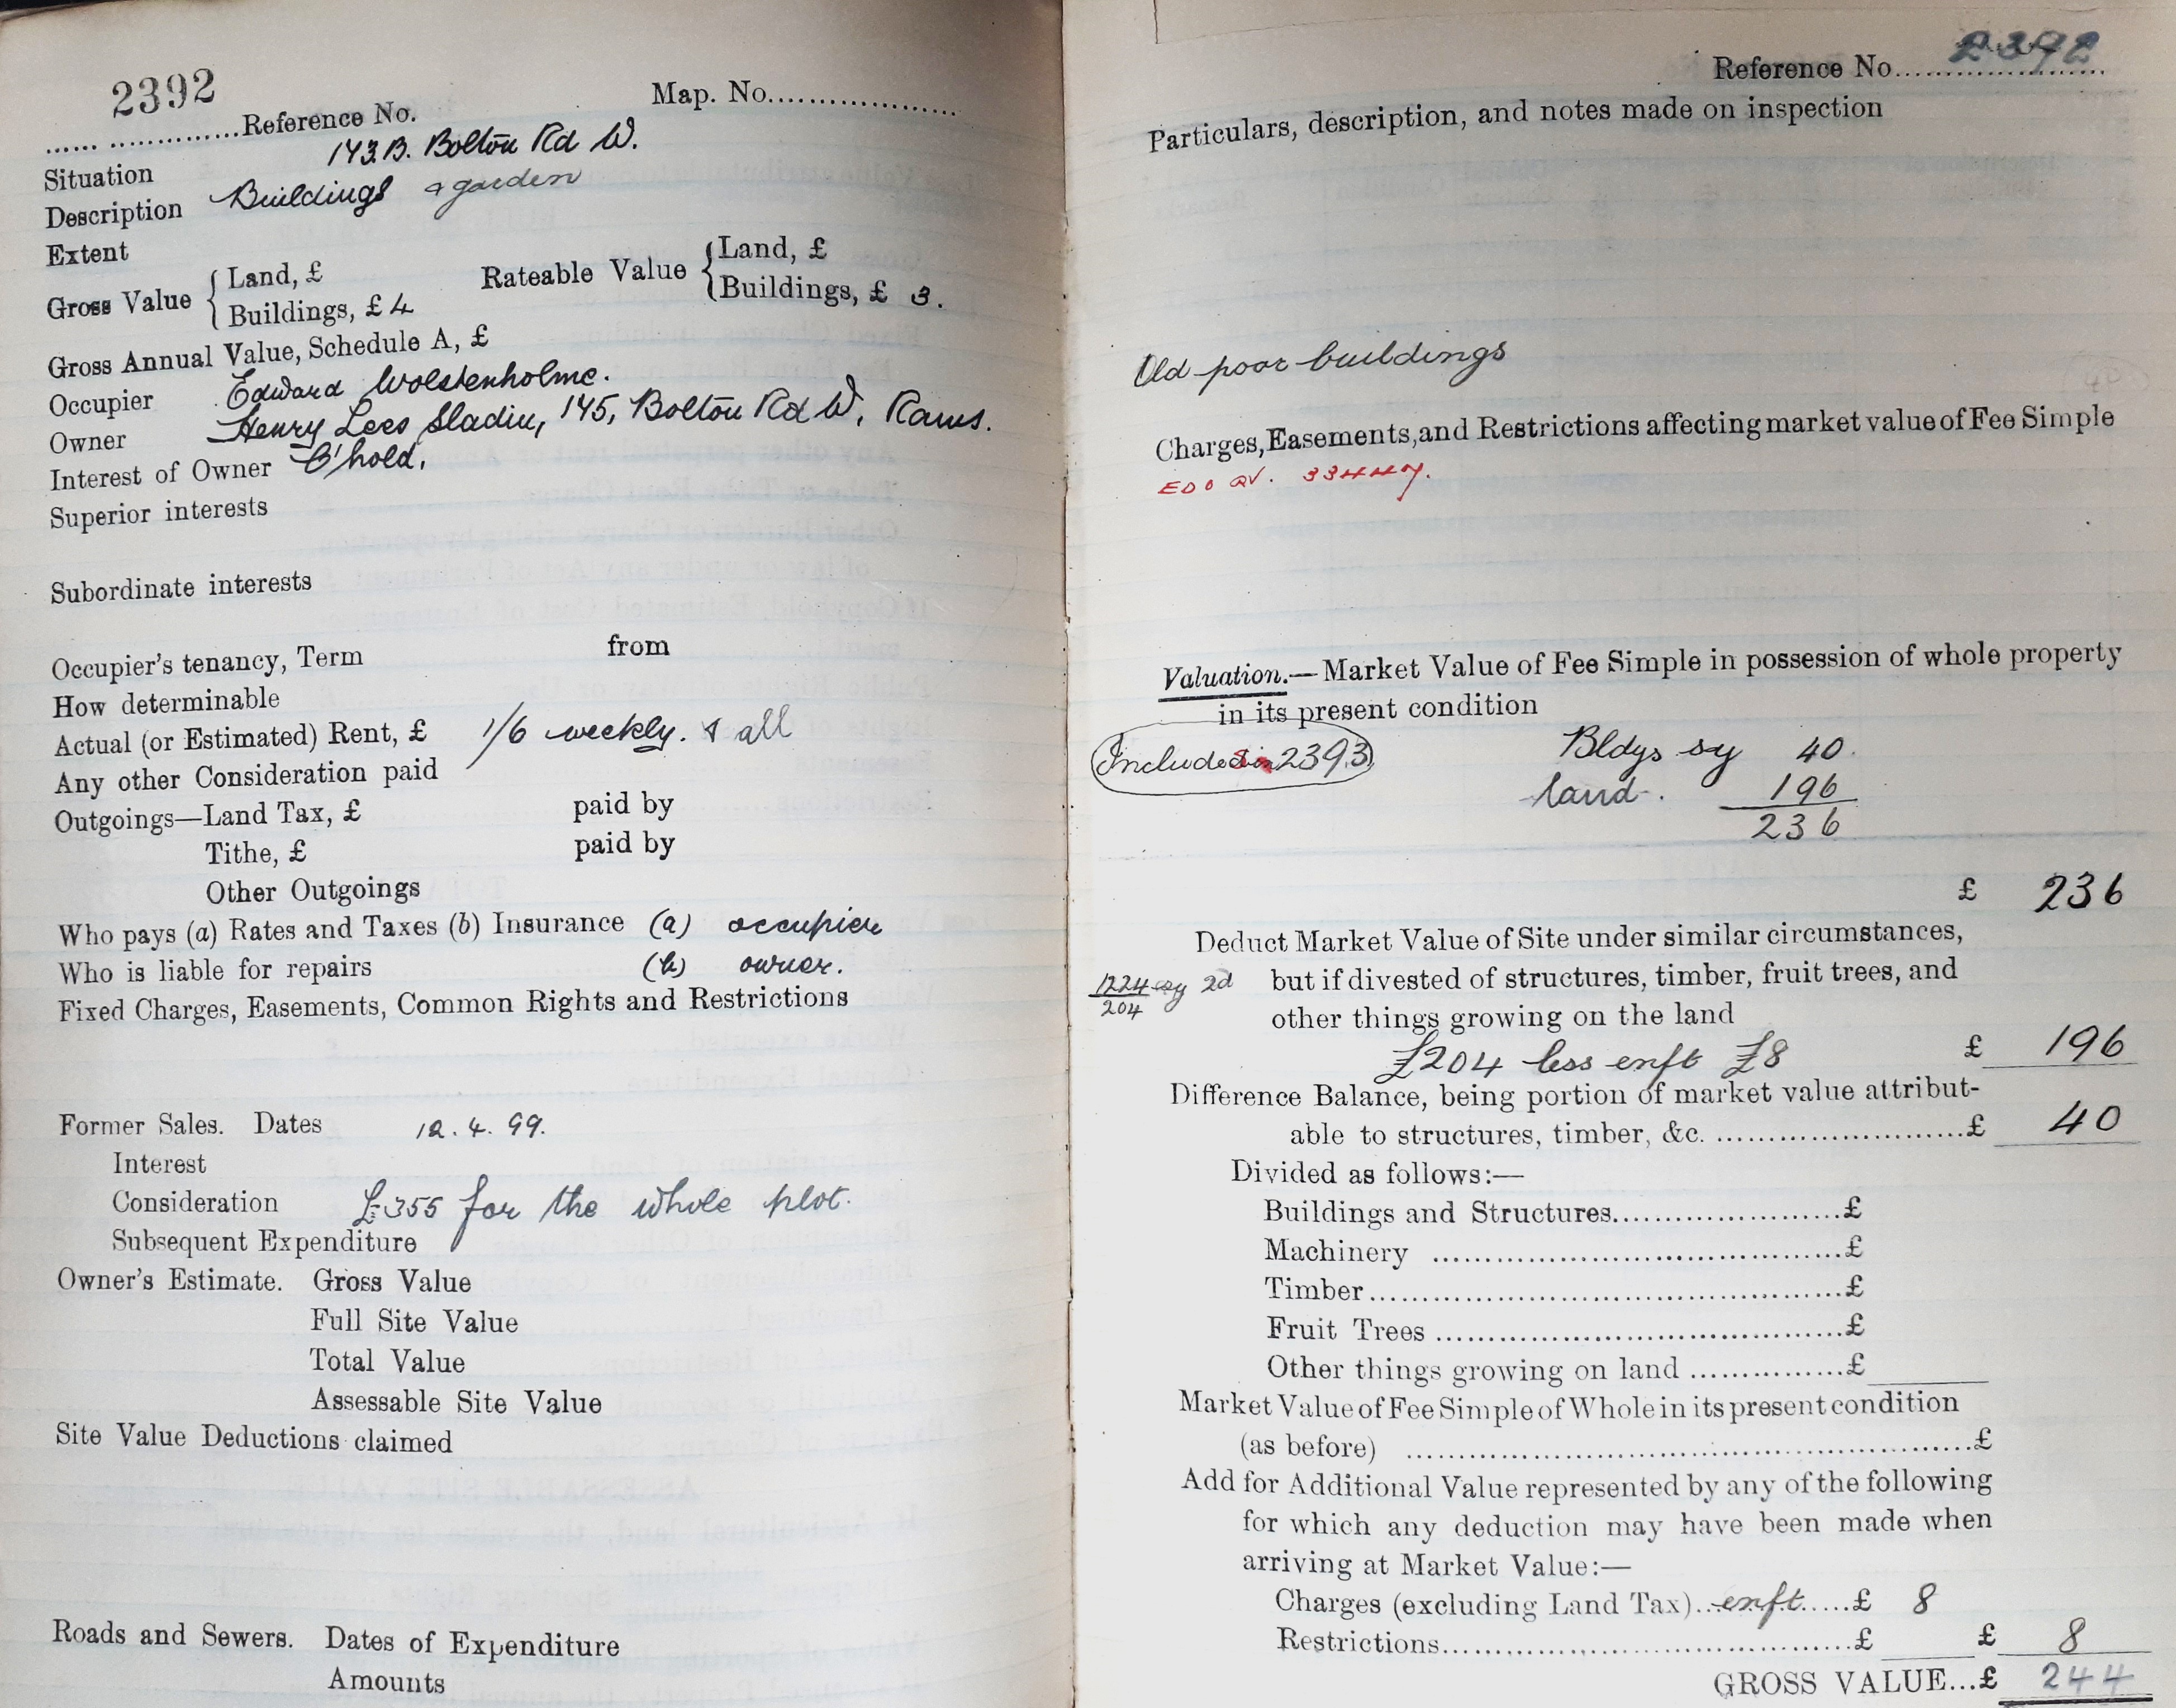 2392
...... ...............Reference No.
Map. No....................
Situation 143.B. Bolton Rd W.
Description Buildings & garden
Extent
Gross Value { Land, £
Buildings, £ 4
Rateable Value { Land, £
Buildings, £ 3.
Gross Annual Value, Schedule A, £
Occupier Edward Wolstenholme.
Owner Henry Lees Sladin, 145, Bolton Rd W, Rams.
Interest of Owner C'hold.
Superior interests
Subordinate interests
Occupier's tenancy, Term from
How determinable
Actual (or Estimated) Rent, £ 1/6 weekly. & all
Any other Consideration paid
Outgoings—Land Tax, £ paid by
Tithe, £ paid by
Other Outgoings
Who pays (a) Rates and Taxes (b) Insurance (a) occupier
Who is liable for repairs (b) owner.
Fixed Charges, Easements, Common Rights and Restrictions
Former Sales. Dates 12.4.99.
Interest
Consideration £355 for the whole plot.
Subsequent Expenditure
Owner's Estimate. Gross Value
Full Site Value
Total Value
Assessable Site Value
Site Value Deductions claimed
Roads and Sewers. Dates of Expenditure
Amounts
Reference No. 2392
Particulars, description, and notes made on inspection
Old poor buildings
Charges, Easements, and Restrictions affecting market value of Fee Simple
33447.
Valuation.—Market Value of Fee Simple in possession of whole property
in its present condition
Included in 2393
Bldgs say 40.
land. 196
236
£ 236
Deduct Market Value of Site under similar circumstances,
1224 sy 2d but if divested of structures, timber, fruit trees, and
204 other things growing on the land
£204 less enft £8 £ 196
Difference Balance, being portion of market value attribut-
able to structures, timber, &c. ..........................£ 40
Divided as follows:—
Buildings and Structures........................£
Machinery ...........................................£
Timber..................................................£
Fruit Trees ...........................................£
Other things growing on land ................£
Market Value of Fee Simple of Whole in its present condition
(as before) ............................................................£
Add for Additional Value represented by any of the following
for which any deduction may have been made when
arriving at Market Value:—
Charges (excluding Land Tax)...enft.....£ 8
Restrictions............................................£ £ 8
GROSS VALUE...£ 244